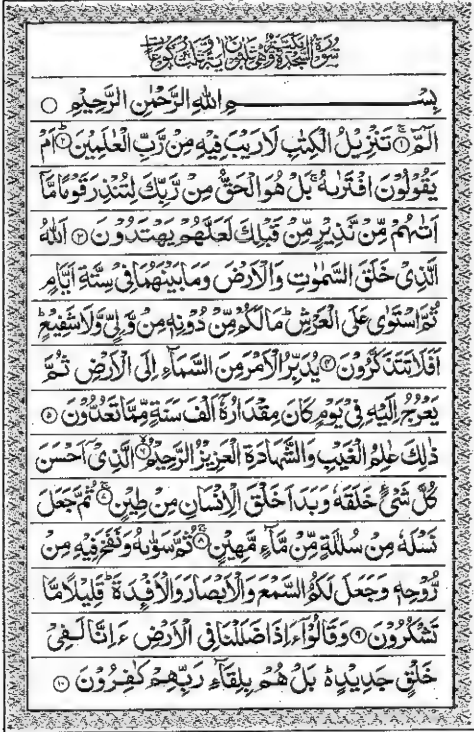 سورة السجدة مكية وهى ثلثون اية وثلث ركوعات
بِسْمِ اللهِ الرَّحْمٰنِ الرَّحِيْمِ ○
الٓمّٓ ۚ﴿۱﴾ تَنْزِيْلُ الْكِتٰبِ لَا رَيْبَ فِيْهِ مِنْ رَّبِّ الْعٰلَمِيْنَ ؕ﴿۲﴾ اَمْ
يَقُوْلُوْنَ افْتَرٰىهُ ۚ بَلْ هُوَ الْحَقُّ مِنْ رَّبِّكَ لِتُنْذِرَ قَوْمًا مَّاۤ
اَتٰىهُمْ مِّنْ نَّذِيْرٍ مِّنْ قَبْلِكَ لَعَلَّهُمْ يَهْتَدُوْنَ ﴿۳﴾ اَللهُ
الَّذِيْ خَلَقَ السَّمٰوٰتِ وَالْاَرْضَ وَمَا بَيْنَهُمَا فِيْ سِتَّةِ اَيَّامٍ
ثُمَّ اسْتَوٰى عَلَى الْعَرْشِ ؕ مَا لَكُمْ مِّنْ دُوْنِهٖ مِنْ وَّلِيٍّ وَّلَا شَفِيْعٍ ؕ
اَفَلَا تَتَذَكَّرُوْنَ ﴿۴﴾ يُدَبِّرُ الْاَمْرَ مِنَ السَّمَآءِ اِلَى الْاَرْضِ ثُمَّ
يَعْرُجُ اِلَيْهِ فِيْ يَوْمٍ كَانَ مِقْدَارُهٗۤ اَلْفَ سَنَةٍ مِّمَّا تَعُدُّوْنَ ﴿۵﴾
ذٰلِكَ عٰلِمُ الْغَيْبِ وَالشَّهَادَةِ الْعَزِيْزُ الرَّحِيْمُ ۙ﴿۶﴾ الَّذِيْۤ اَحْسَنَ
كُلَّ شَيْءٍ خَلَقَهٗ وَبَدَاَ خَلْقَ الْاِنْسَانِ مِنْ طِيْنٍ ۚ﴿۷﴾ ثُمَّ جَعَلَ
نَسْلَهٗ مِنْ سُلٰلَةٍ مِّنْ مَّآءٍ مَّهِيْنٍ ۚ﴿۸﴾ ثُمَّ سَوّٰىهُ وَنَفَخَ فِيْهِ مِنْ
رُّوْحِهٖ وَجَعَلَ لَكُمُ السَّمْعَ وَالْاَبْصَارَ وَالْاَفْـِٕدَةَ ؕ قَلِيْلًا مَّا
تَشْكُرُوْنَ ﴿۹﴾ وَقَالُوْۤا ءَاِذَا ضَلَلْنَا فِي الْاَرْضِ ءَاِنَّا لَفِيْ
خَلْقٍ جَدِيْدٍ ؕ بَلْ هُمْ بِلِقَآءِ رَبِّهِمْ كٰفِرُوْنَ ﴿۱۰﴾